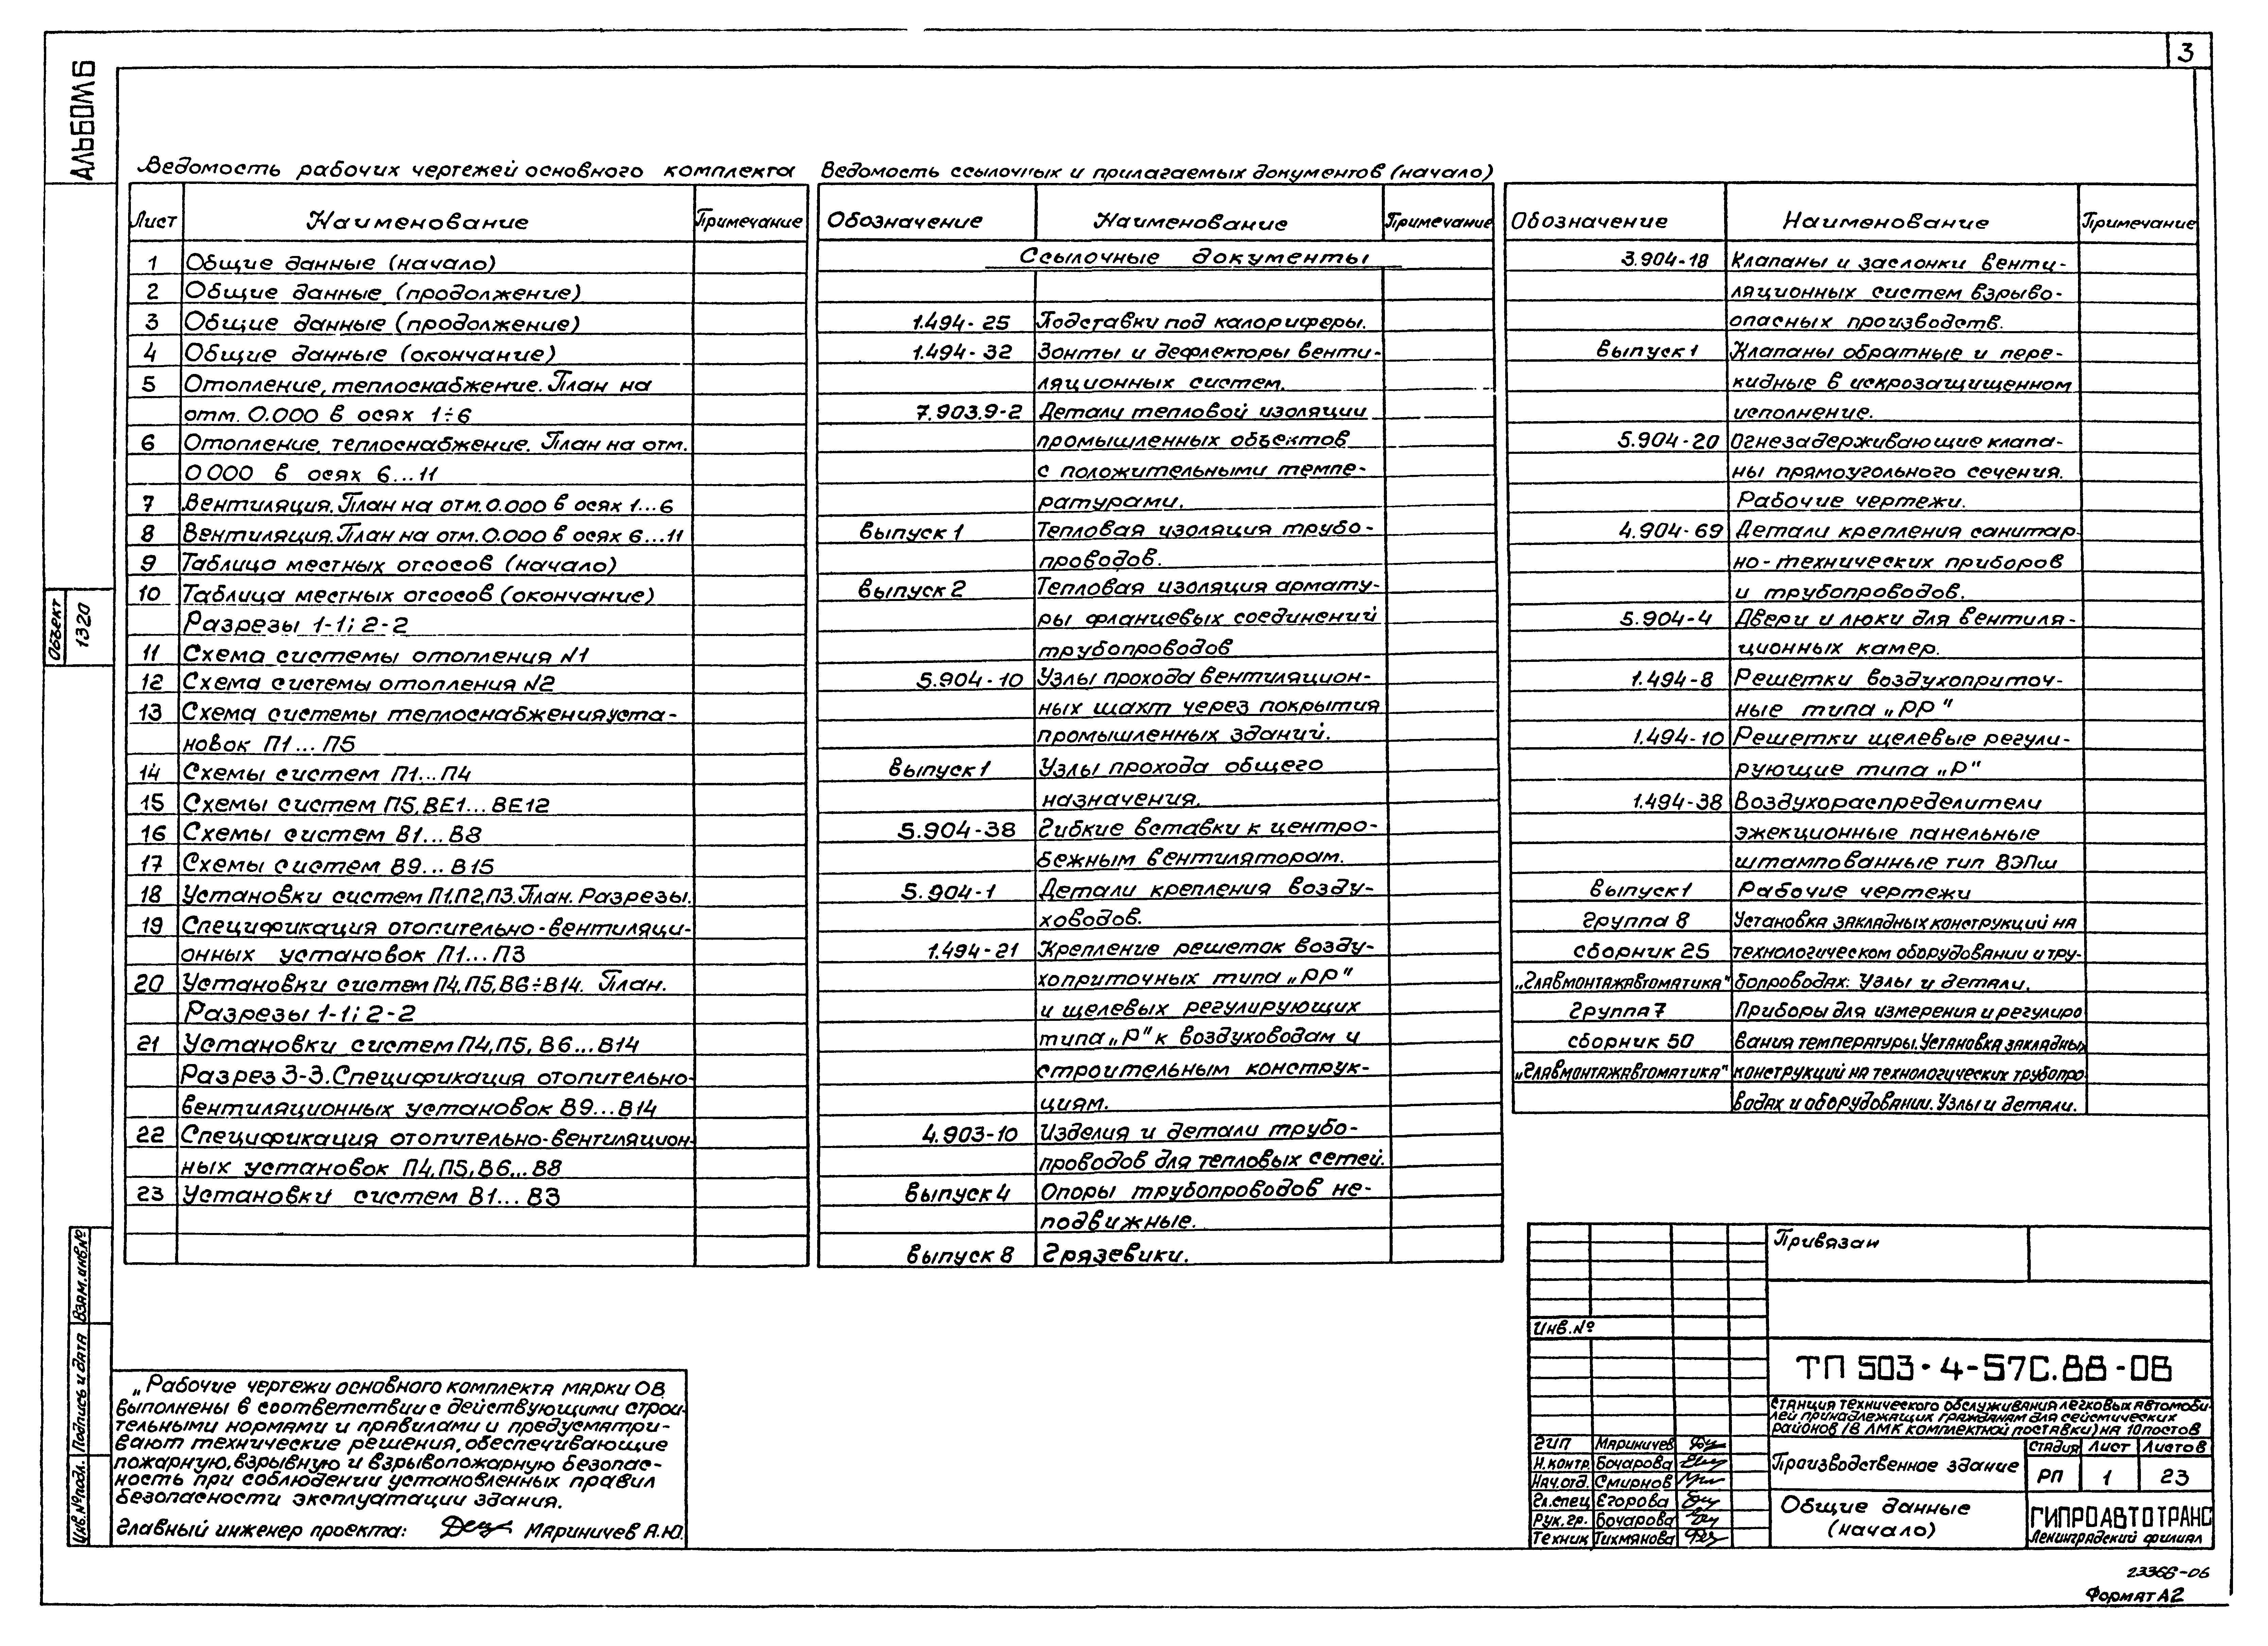 3
АЛЬБОМ 6
Объект
1320
Взам.инв.№
Подпись и дата
Инв.№подл.
Ведомость рабочих чертежей основного комплекта
Лист Наименование Примечание
1 Общие данные (начало)
2 Общие данные (продолжение)
3 Общие данные (продолжение)
4 Общие данные (окончание)
5 Отопление, теплоснабжение. План на
отм. 0.000 в осях 1÷6
6 Отопление, теплоснабжение. План на отм.
0.000 в осях 6...11
7 Вентиляция. План на отм. 0.000 в осях 1...6
8 Вентиляция. План на отм. 0.000 в осях 6...11
9 Таблица местных отсосов (начало)
10 Таблица местных отсосов (окончание)
Разрезы 1-1; 2-2
11 Схема системы отопления N1
12 Схема системы отопления N2
13 Схема системы теплоснабжения уста-
новок П1...П5
14 Схемы систем П1...П4
15 Схемы систем П5, ВЕ1...ВЕ12
16 Схемы систем В1...В8
17 Схемы систем В9...В15
18 Установки систем П1.П2,П3. План. Разрезы.
19 Спецификация отопительно-вентиляци-
онных установок П1...П3
20 Установки систем П4, П5, В6÷В14. План.
Разрезы 1-1; 2-2
21 Установки систем П4, П5, В6...В14
Разрез 3-3. Спецификация отопительно-
вентиляционных установок В9...В14
22 Спецификация отопительно-вентиляцион-
ных установок П4, П5, В6...В8
23 Установки систем В1...В3
Ведомость ссылочных и прилагаемых документов (начало)
Обозначение Наименование Примечание
Ссылочные документы
1.494-25 Подставки под калориферы.
1.494-32 Зонты и дефлекторы венти-
ляционных систем.
7.903.9-2 Детали тепловой изоляции
промышленных объектов
с положительными темпе-
ратурами.
Выпуск 1 Тепловая изоляция трубо-
проводов.
Выпуск 2 Тепловая изоляция армату-
ры фланцевых соединений
трубопроводов
5.904-10 Узлы прохода вентиляцион-
ных шахт через покрытия
промышленных зданий.
Выпуск 1 Узлы прохода общего
назначения.
5.904-38 Гибкие вставки к центро-
бежным вентиляторам.
5.904-1 Детали крепления возду-
ховодов.
1.494-21 Крепление решеток возду-
хоприточных типа „РР"
и щелевых регулирующих
типа „Р" к воздуховодам и
строительным конструк-
циям.
4.903-10 Изделия и детали трубо-
проводов для тепловых сетей.
Выпуск 4 Опоры трубопроводов не-
подвижные.
Выпуск 8 Грязевики.
Обозначение Наименование Примечание
3.904-18 Клапаны и заслонки венти-
ляционных систем взрыво-
опасных производств.
Выпуск 1 Клапаны обратные и пере-
кидные в искрозащищенном
исполнение.
5.904-20 Огнезадерживающие клапа-
ны прямоугольного сечения.
Рабочие чертежи.
4.904-69 Детали крепления санитар-
но-технических приборов
и трубопроводов.
5.904-4 Двери и люки для вентиля-
ционных камер.
1.494-8 Решетки воздухоприточ-
ные типа „РР"
1.494-10 Решетки щелевые регули-
рующие типа „Р"
1.494-38 Воздухораспределители
эжекционные панельные
штампованные тип ВЭПш
Выпуск 1 Рабочие чертежи
Группа 8 Установка закладных конструкций на
сборник 25 технологическом оборудовании и тру-
„Главмонтажавтоматика" бопроводах. Узлы и детали.
Группа 7 Приборы для измерения и регулиро
сборник 50 вания температуры. Установка закладных
„Главмонтажавтоматика" конструкций на технологических трубопро
водах и оборудовании. Узлы и детали.
„Рабочие чертежи основного комплекта марки ОВ
выполнены в соответствии с действующими строи-
тельными нормами и правилами и предусматри-
вают технические решения, обеспечивающие
пожарную, взрывную и взрывопожарную безопас-
ность при соблюдении установленных правил
безопасности эксплуатации здания.
Главный инженер проекта: Мариничев А.Ю.
Привязан
Инв.№
ТП 503-4-57С.88-ОВ
Станция технического обслуживания легковых автомоби-
лей принадлежащих гражданам для сейсмических
районов (в ЛМК комплектной поставки) на 10 постов
ГИП Мариничев
Н.контр. Бочарова
Нач.отд. Смирнов
Гл.спец. Егорова
Рук.гр. Бочарова
Техник Тихмянова
Производственное здание
Стадия Лист Листов
РП 1 23
Общие данные
(начало)
ГИПРОАВТОТРАНС
Ленинградский филиал
23366-06
Формат А2